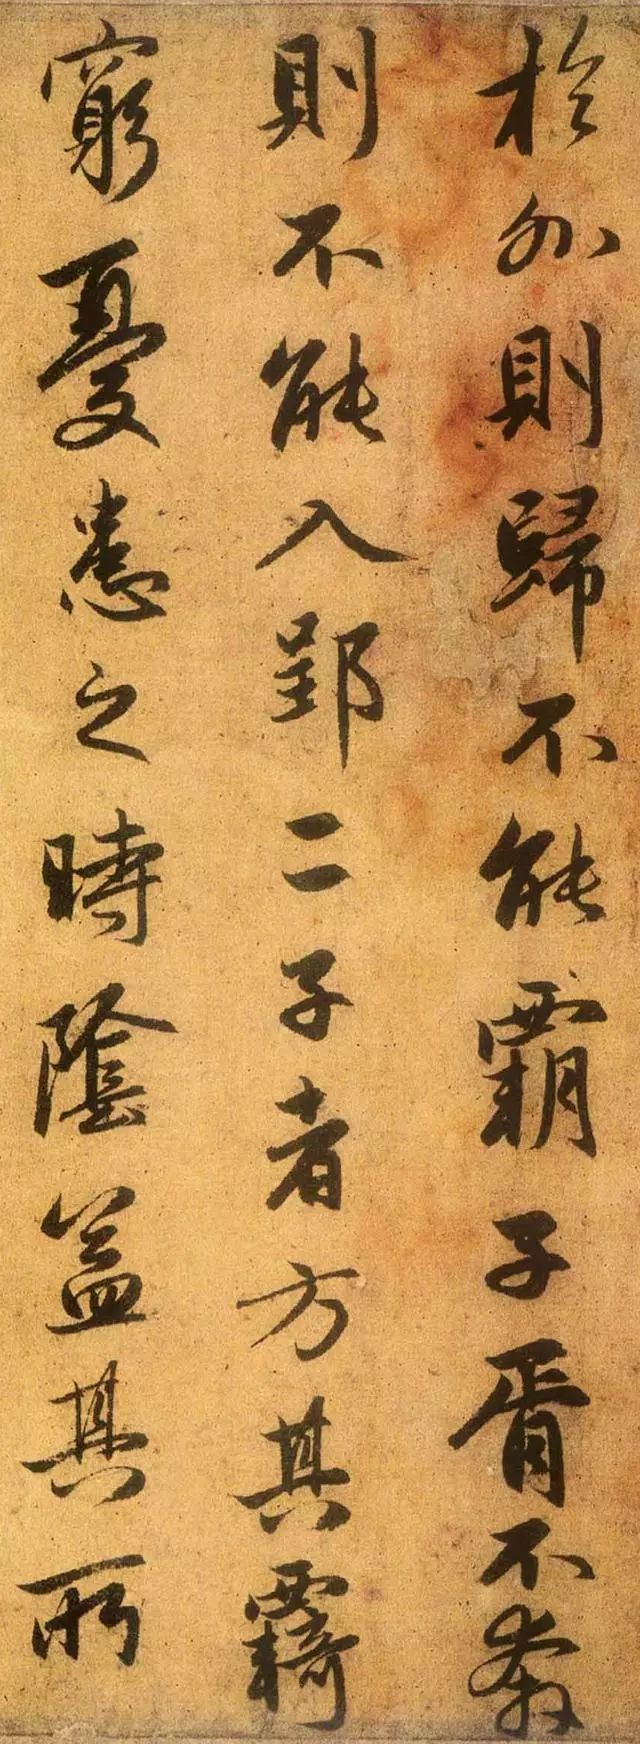 於外則歸不能覇子胥不奔
則不能入郢二子者方其覊
窮憂患之時隂盖其所